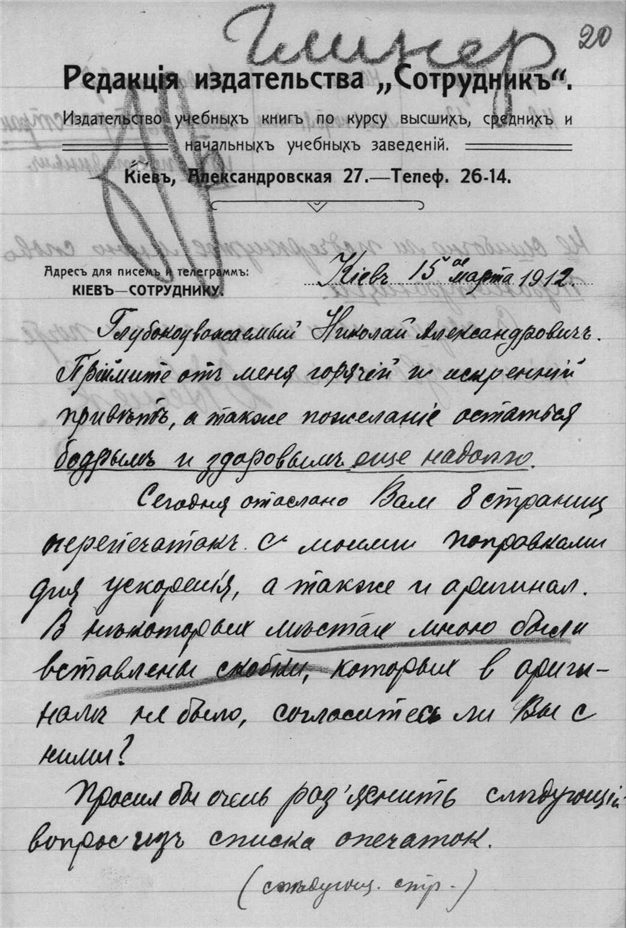 Глинер
20
Редакція издательства „Сотрудникъ“.
Издательство учебныхъ книгъ по курсу высшихъ, среднихъ и
начальныхъ учебныхъ заведеній.
Кіевъ, Александровская 27.—Телеф. 26-14.
Адресъ для писемъ и телеграммъ:
КІЕВЪ—СОТРУДНИКУ.
Кіевъ 15го марта 1912.
Глубокоуважаемый Николай Александровичъ.
Пріймите отъ меня горячій и искренній
привѣтъ, а также пожеланіе остаться
бодрымъ и здоровымъ еще надолго.
Сегодня отослано Вам 8 страниц
перепечаток с моими поправками
для ускоренія, а также и оригинал.
В нѣкоторых мѣстах мною были
вставлены скобки, которых в ориги-
налѣ не было, согласитесь ли Вы с
ними?
Просил бы очень раз'яснить слѣдующій
вопрос из списка опечаток.
(слѣдующ. стр.)